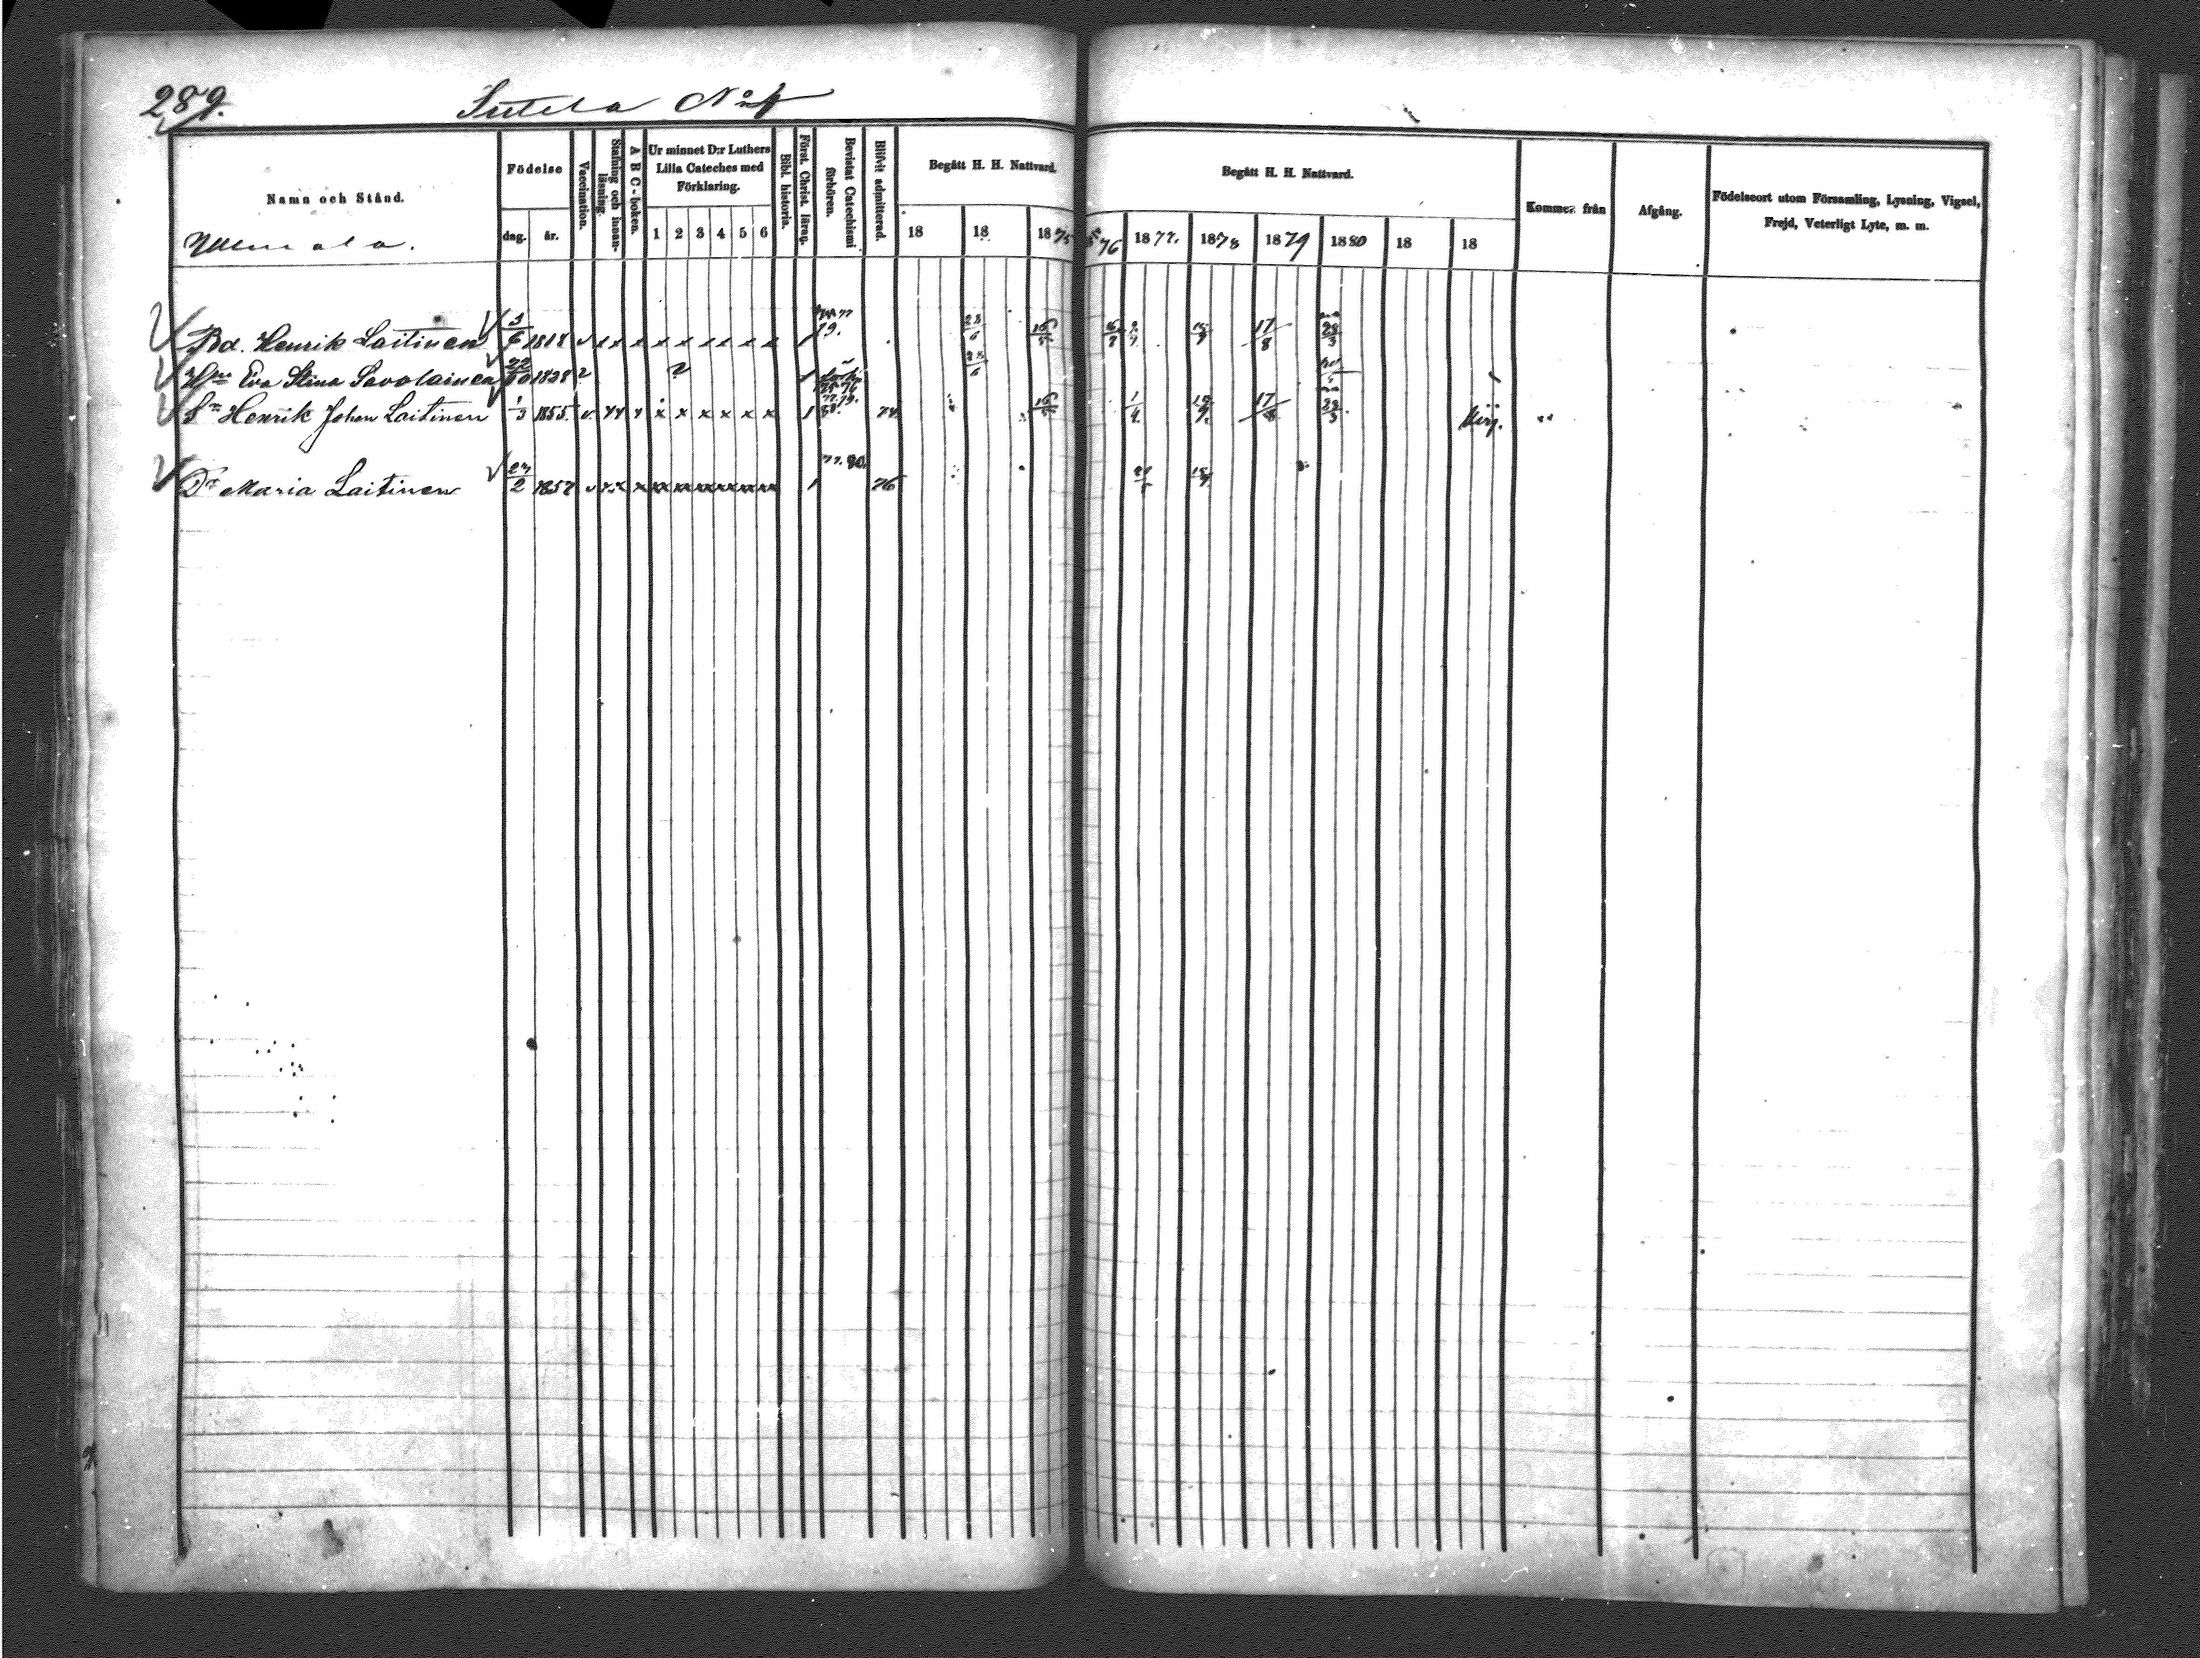 289.
Sutela No 4
Namn och Stånd.
Födelse
dag.
år.
Vaccination.
Stafning och innanläsning.
A B C-boken.
Ur minnet D:r Luthers
Lilla Cateches med
Förklaring.
1 2 3 4 5 6
Bibl. historia.
Först. Christ. lärog.
Bevistat Catechismi förhören.
Blifvit admitterad.
Begått H. H. Nattvard.
18 18 1875
Begått H. H. Nattvard.
76 1877. 1878 1879 1880 18 18
Kommer från
Afgång.
Födelseort utom Församling, Lysning, Vigsel,
Frejd, Veterligt Lyte, m. m.
Bd. Henrik Laitinen 3/6 1818 v x x x x x x x x x 1 79. 28/6 16/5 17/8 28/3
Hu Eva Stina Savolainen 1838 1 28/6
Sn Henrik Johan Laitinen 1/3 1855. v. x x x x x x x x x 1 74. 16/5 1/4 17/8 28/3 Kirj.
Dr Maria Laitinen 27/2 1857 v x x x xx xx xx xx xx xx 1 77. 80. 76